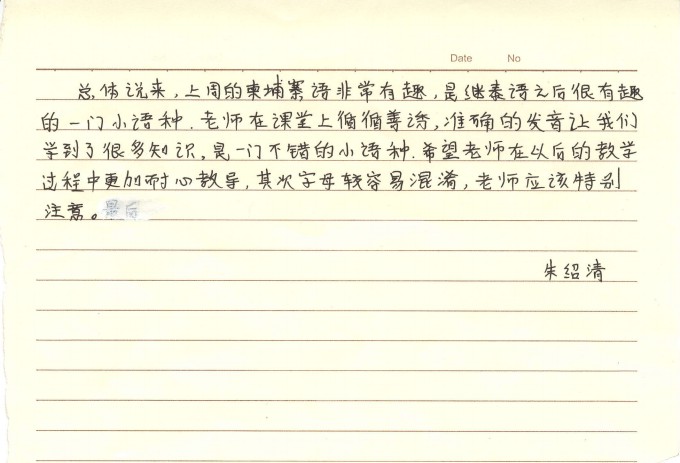 Date No
总体说来，上周的柬埔寨语非常有趣，是继泰语之后很有趣
的一门小语种．老师在课堂上循循善诱，准确的发音让我们
学到了很多知识，是一门不错的小语种．希望老师在以后的教学
过程中更加耐心教导，其次字母较容易混淆，老师应该特别
注意。最后
朱绍清